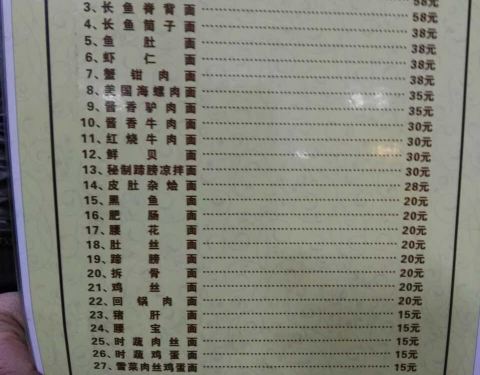 58元
3、长鱼脊背面 58元
4、长鱼筒子面 38元
5、鱼肚面 38元
6、虾仁面 38元
7、蟹钳肉面 38元
8、美国海螺肉面 35元
9、酱香驴肉面 35元
10、酱香牛肉面 30元
11、红烧牛肉面 30元
12、鲜贝面 30元
13、秘制蹄膀凉拌面 30元
14、皮肚杂烩面 28元
15、黑鱼面 20元
16、肥肠面 20元
17、腰花面 20元
18、肚丝面 20元
19、蹄膀面 20元
20、拆骨面 20元
21、鸡丝面 20元
22、回锅肉面 20元
23、猪肝面 15元
24、腰宝面 15元
25、时蔬肉丝面 15元
26、时蔬鸡蛋面 15元
27、雪菜肉丝鸡蛋面 15元